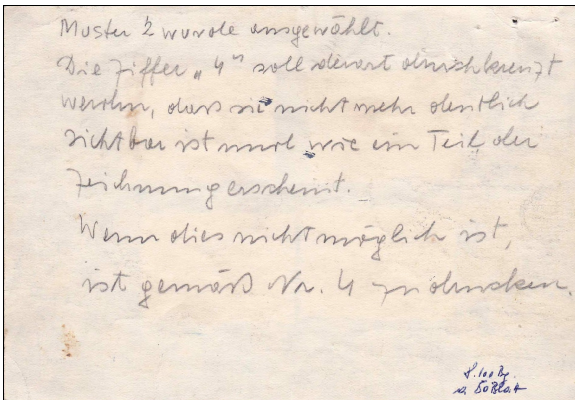 Muster 2 wurde ausgewählt.
Die Ziffer „4“ soll derart durchkreuzt
werden, dass sie nicht mehr deutlich
sichtbar ist und wie ein Teil der
Zeichnung erscheint.
Wenn dies nicht möglich ist,
ist gemäß Nr. 4 zu drucken.
100 Bg.
50 Blatt